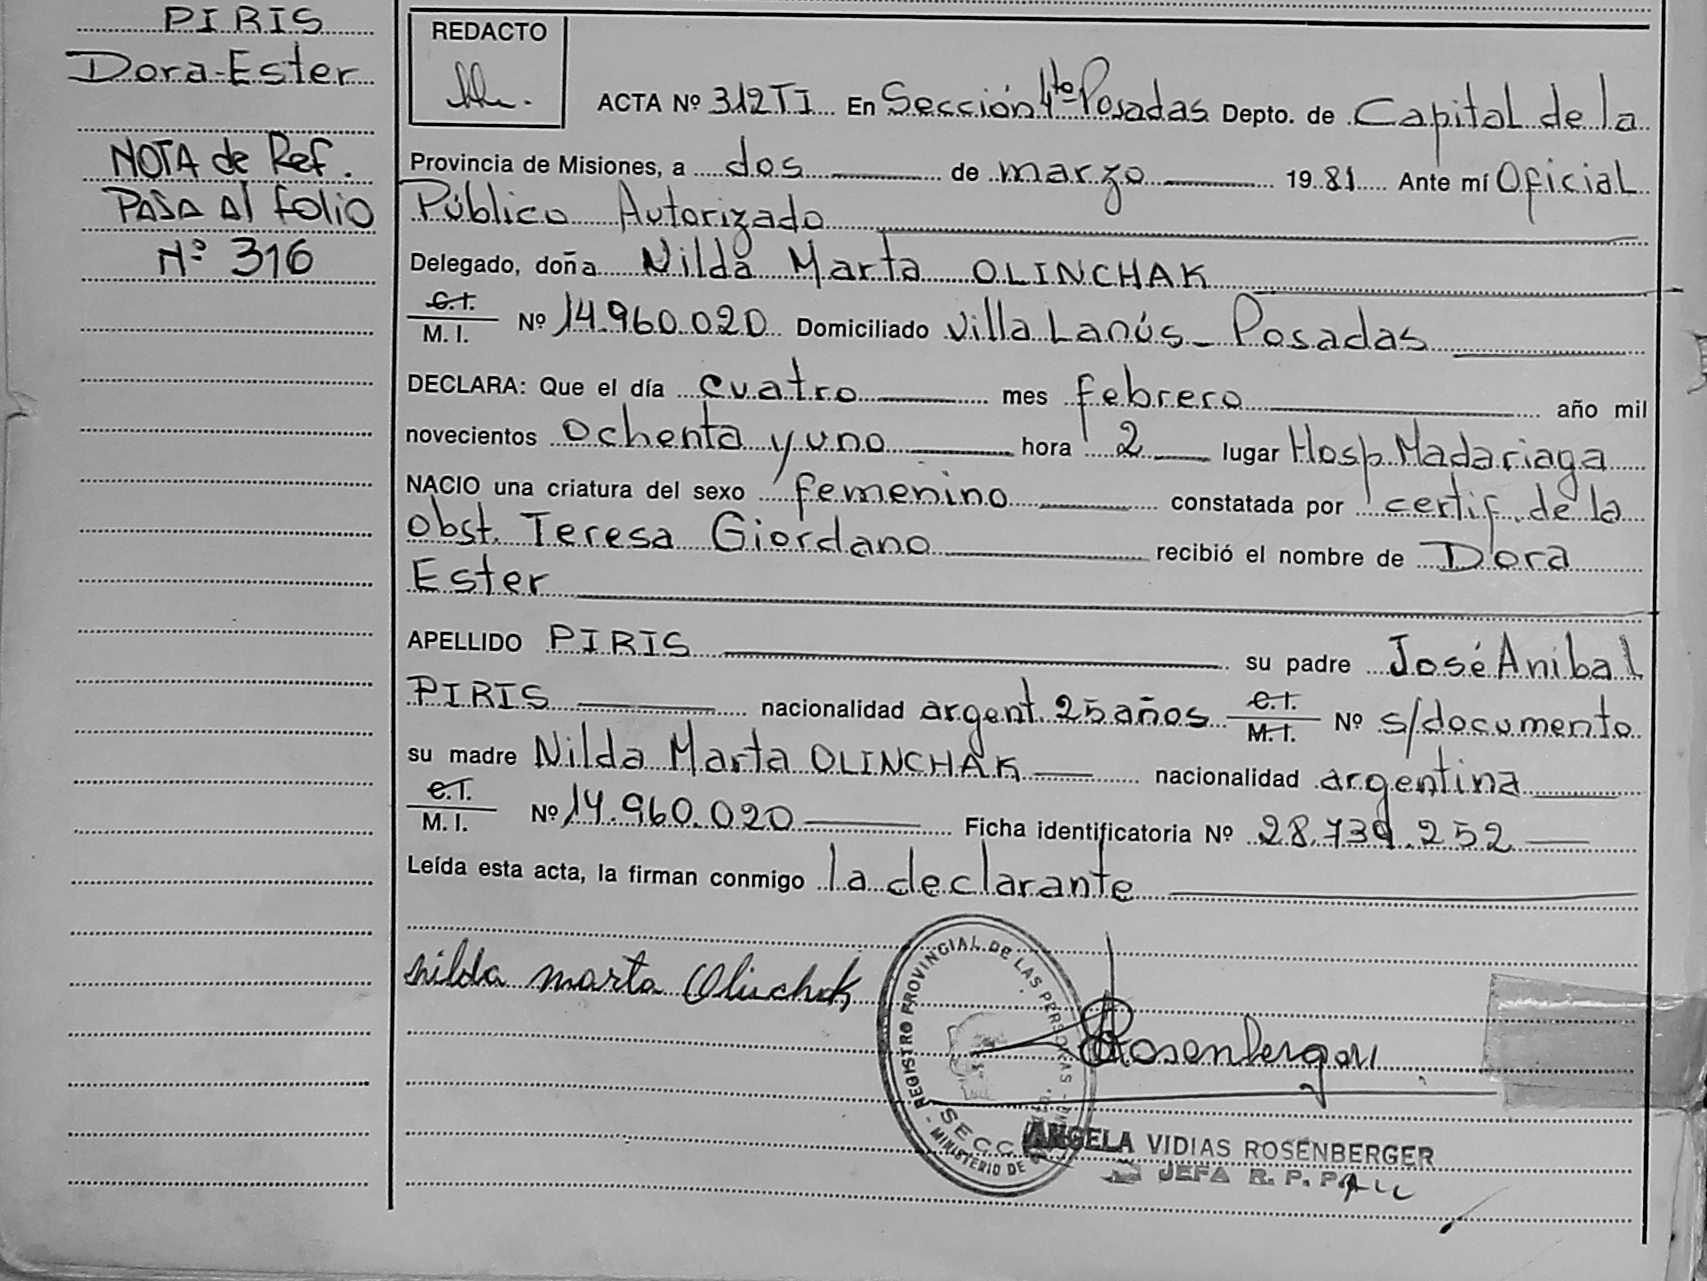 PIRIS
Dora Ester
NOTA de Ref.
PASA Al folio
Nº 316
REDACTO
ACTA Nº 312TI En Sección 4ta Posadas Depto. de Capital de la
Provincia de Misiones, a dos de marzo 1981 Ante mí Oficial
Público Autorizado
Delegado, doña Nilda Marta OLINCHAK
C.I.
M.I. Nº 14.960.020 Domiciliado Villa Lanús - Posadas
DECLARA: Que el día cuatro mes febrero año mil
novecientos ochenta y uno hora 2 lugar Hosp. Madariaga
NACIO una criatura del sexo femenino constatada por certif. de la
obst. Teresa Giordano recibió el nombre de Dora
Ester
APELLIDO PIRIS su padre José Anibal
PIRIS nacionalidad argent. 25 años C.I. M.I. Nº s/documento
su madre Nilda Marta OLINCHAK nacionalidad argentina
C.I.
M.I. Nº 14.960.020 Ficha identificatoria Nº 28.739.252
Leída esta acta, la firman conmigo la declarante
nilda marta Olinchak
REGISTRO PROVINCIAL DE LAS PERSONAS
SECC
MINISTERIO DE
Rosenberger
ANGELA VIDIAS ROSENBERGER
JEFA R. P. P.